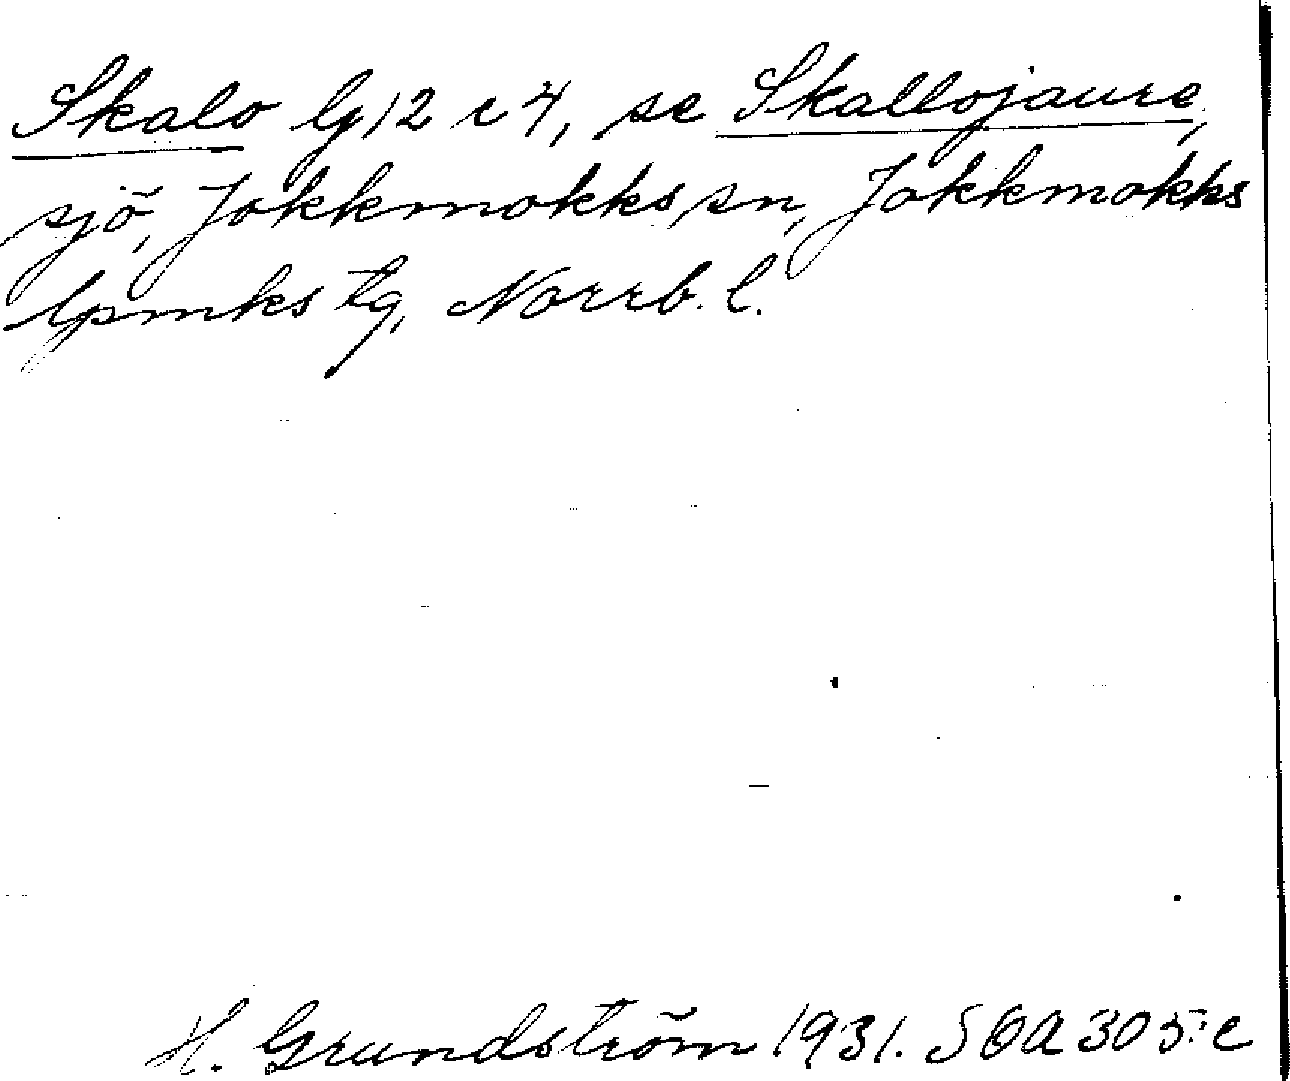 Skalo Gg 12 c 4, se Skallojaure,
sjö, Jokkmokks sn, Jokkmokks
lpmks tg, Norrb. l.
H. Grundström 1931. SOA 305:c